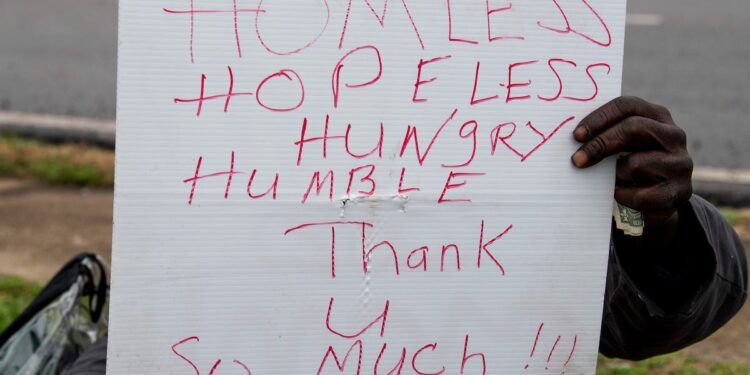 HOMLESS
HOPELESS
HUNgRY
HUMBLE
Thank
U
So Much !!!